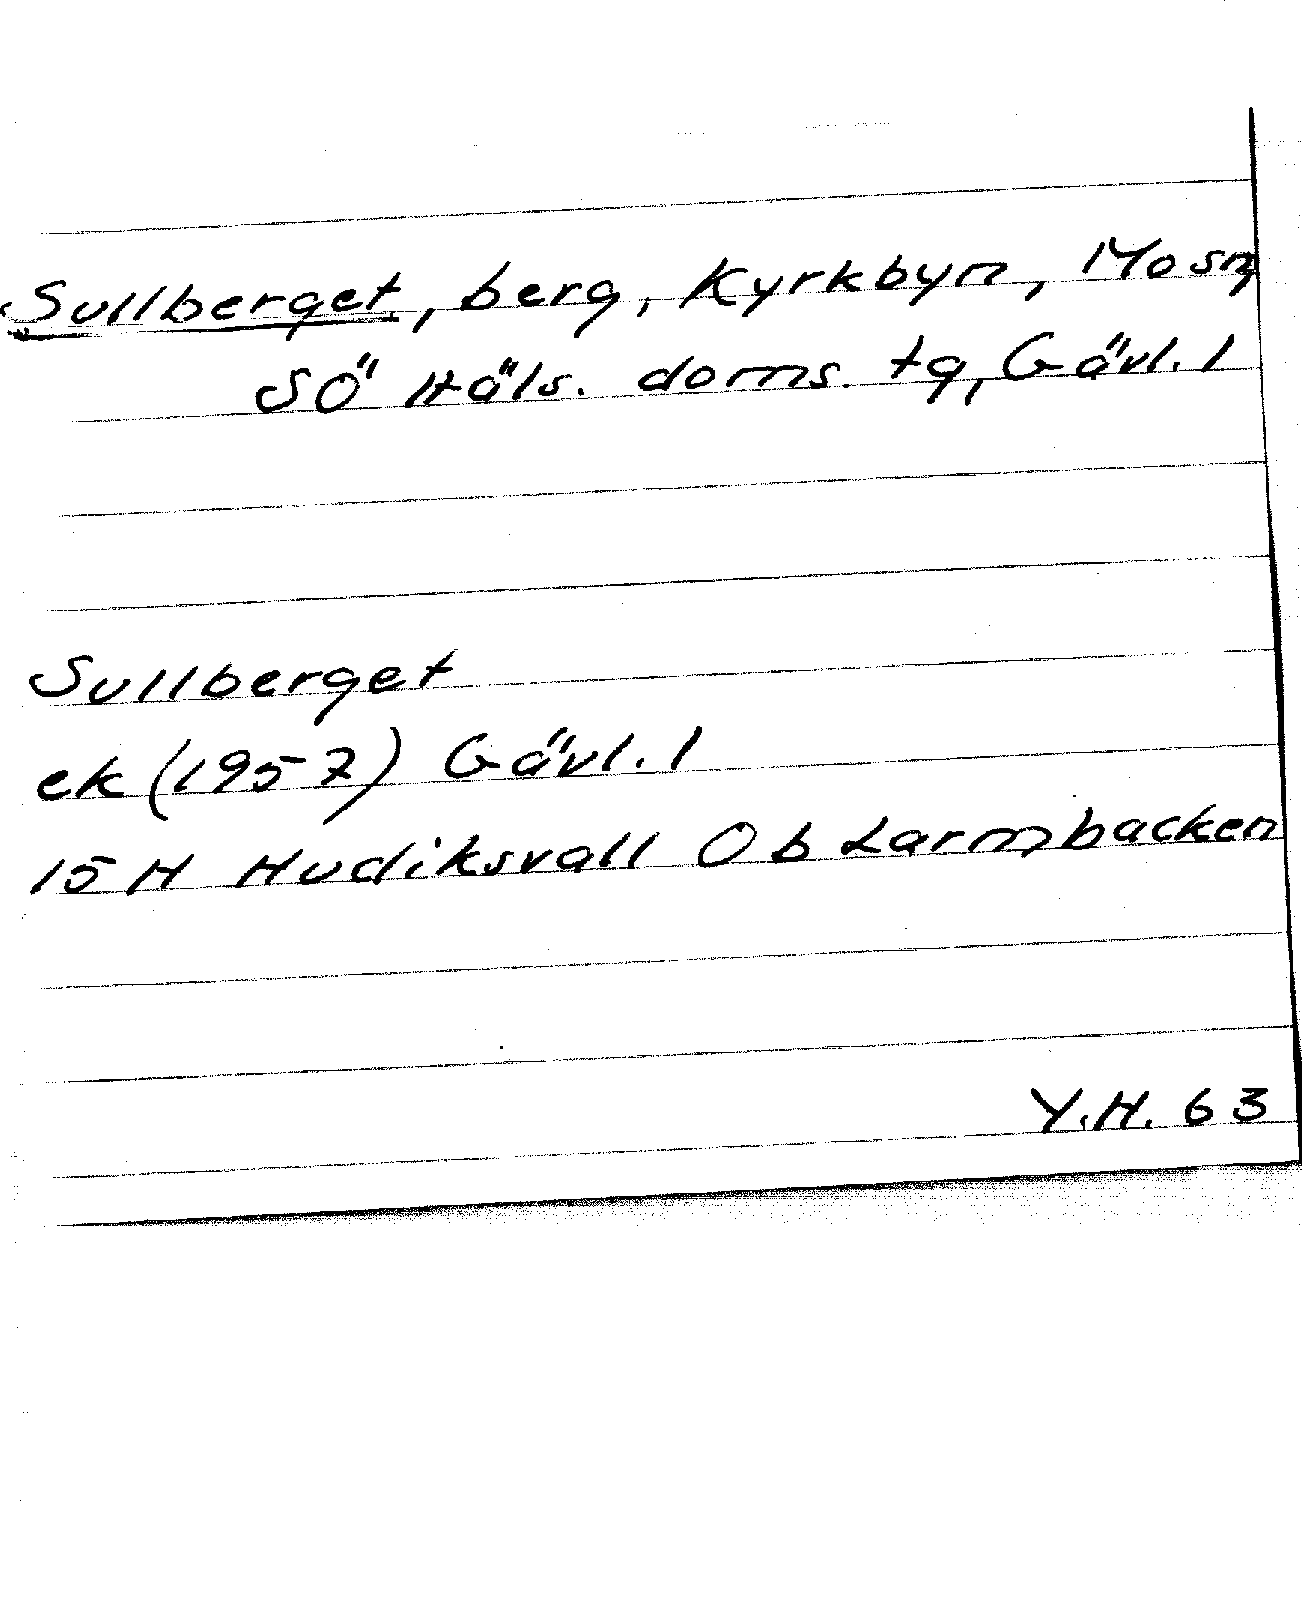 Sullberget, berg, Kyrkbyn, Mo sn,
SÖ Häls. doms. tg, Gävl. l
Sullberget
ek (1957) Gävl. l
15 H Hudiksvall O b Larmbacken
Y.H. 63